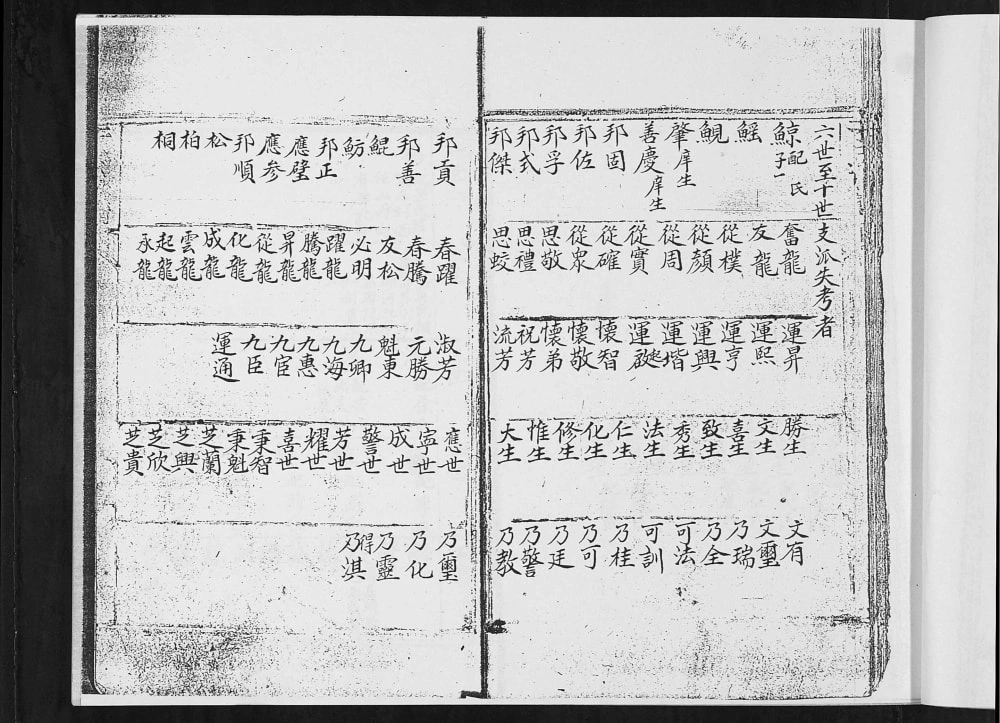 六世至十世支派失考者
鯨配氏子一
鰩
鯢
肇庠生
善慶庠生
邦固
邦佐
邦孚
邦式
邦傑
奮龍
友龍
從樸
從顏
從周
從實
從確
從衆
思敬
思禮
思蛟
運昇
運熙
運亨
運興
運堦
運礎
懷智
懷敬
懷弟
祝芳
流芳
勝生
文生
喜生
致生
秀生
法生
仁生
化生
修生
惟生
大生
文有
文璽
乃瑞
乃全
可法
可訓
乃桂
乃可
乃廷
乃警
乃教
邦貢
邦善
鯤
魴
邦正
應璧
應參
邦順
松
柏
桐
春躍
春騰
友松
必明
躍龍
騰龍
昇龍
從龍
化龍
成龍
雲龍
起龍
永龍
淑芳
元勝
魁東
九卿
九海
九惠
九宦
九臣
運通
應世
寧世
成世
警世
芳世
耀世
喜世
秉智
秉魁
芝蘭
芝興
芝欣
芝貴
乃璽
乃化
乃靈
乃淇